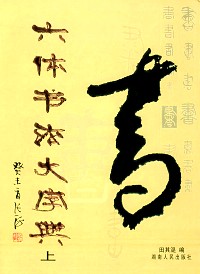 六体书法大字典
上
書
田其湜 编
湖南人民出版社